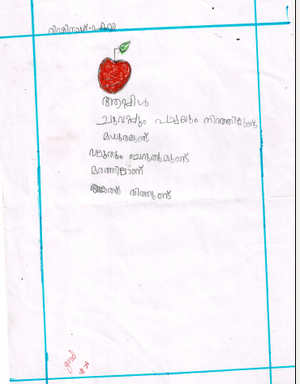 ആപ്പിൾ
ചുവപ്പും പച്ചയും നിറത്തിലുണ്ട്
മധുരമുണ്ട്
വലുതും ചെറുതുമുണ്ട്
മരത്തിലാണ്
അകത്ത് വിത്തുണ്ട്